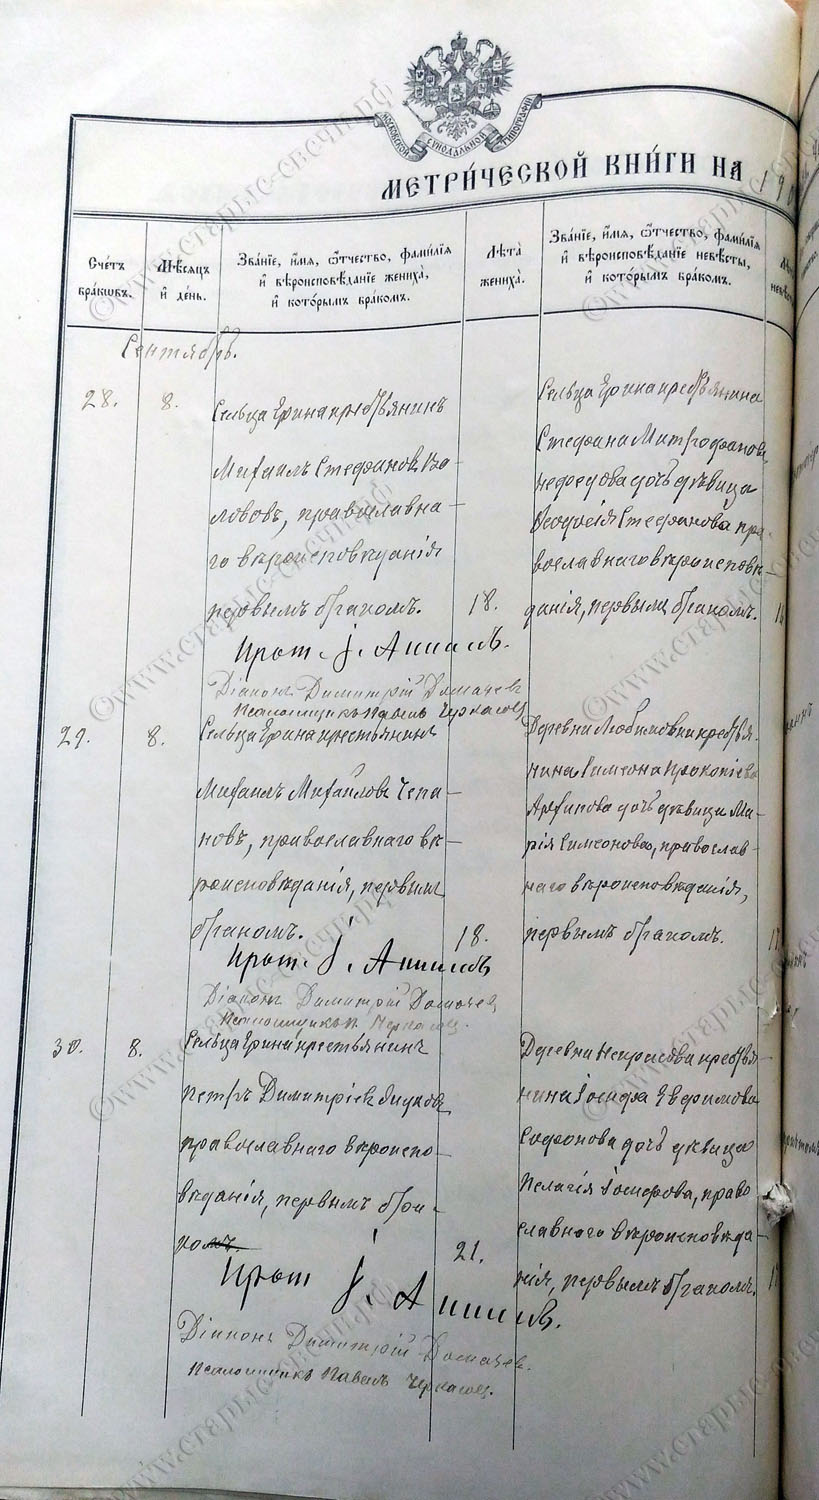 МОСКОВСКОЙ СѴНОДАЛЬНОЙ ТИПОГРАФІИ
МЕТРИ́ЧЕСКОЙ КНИ́ГИ НА 190
Сче́тъ бра́кѡвъ.
Мѣ́сяцъ и҆ де́нь.
Зва́нїе, и҆́мѧ, ѻ҆́тчество, фами́лїѧ
и҆ вѣроисповѣ́данїе жениха̀,
и҆ кото́рымъ бра́комъ.
Лѣ́та жениха̀.
Зва́нїе, и҆́мѧ, ѻ҆́тчество, фами́лїѧ
и҆ вѣроисповѣ́данїе невѣ́сты,
и҆ кото́рымъ бра́комъ.
Сентябрь.
28.
8.
Сельца Ерина крестьянинъ
Михаилъ Стефановъ Во-
ловъ, православна-
го вѣроисповѣданія
первымъ бракомъ.
18.
Сельца Ерина крестьянина
Стефана Митрофанова
Нефедова дочь дѣвица
Ѳеодосія Стефанова пра
вославнаго вѣроисповѣ-
данія, первымъ бракомъ.
Прот. І.
Діаконъ Димитрій
Псаломщикъ Павелъ
29.
8.
Сельца Ерина крестьянинъ
Михаилъ Михайловъ Чепа-
новъ, православнаго вѣ-
роисповѣданія, первымъ
бракомъ.
18.
Деревни Любимовки крестья-
нина Симеона Прокопіева
Архипова дочь дѣвица Ма-
рія Симеонова, православ-
наго вѣроисповѣданія,
первымъ бракомъ.
Прот. І.
Діаконъ Димитрій
Псаломщикъ П.
30.
8.
Сельца Ерина крестьянинъ
Петръ Димитріевъ
православнаго вѣроиспо-
вѣданія, первымъ бра-
комъ.
21.
Деревни Некрасова крестья
нина Іосифа Евфимова
Софонова дочь дѣвица
Пелагія Іосифова, право
славнаго вѣроисповѣда-
нія, первымъ бракомъ.
Прот. І.
Діаконъ Димитрій
Псаломщикъ Павелъ
©www.старые-свечи.рф